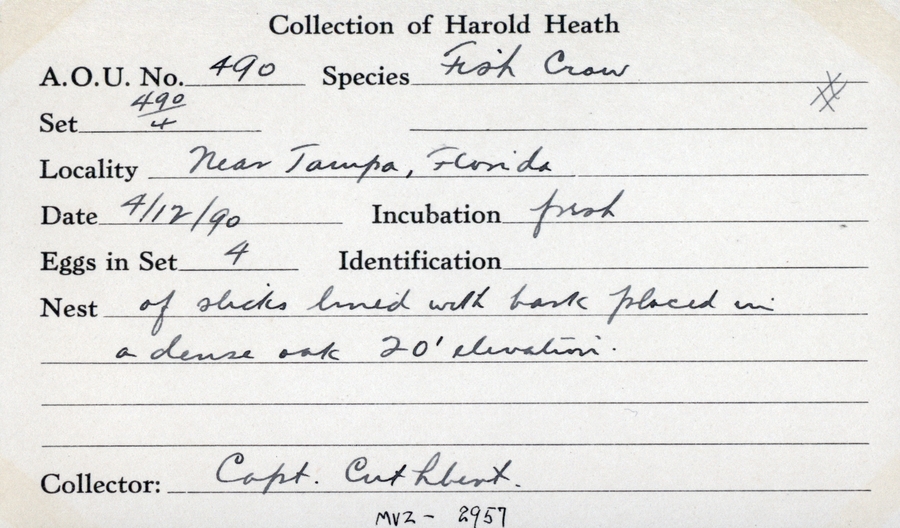 Collection of Harold Heath
A.O.U. No. 490 Species Fish Crow
#
Set 490/4
Locality Near Tampa, Florida
Date 4/12/90 Incubation fresh
Eggs in Set 4 Identification
Nest of sticks lined with bark placed in
a dense oak 20' elevation.
Collector: Capt. Cuthbert.
MVZ - 2957